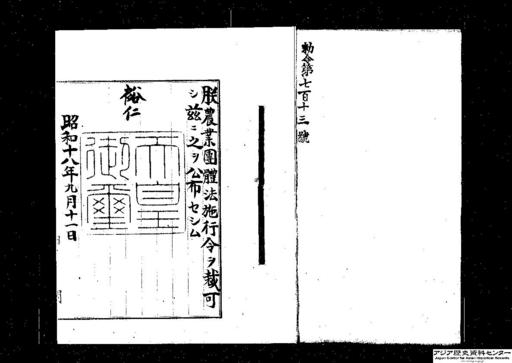 勅令第七百十三號
朕農業團體法施行令ヲ裁可
シ茲ニ之ヲ公布セシム
裕仁
天皇
御璽
昭和十八年九月十一日
アジア歴史資料センター
Japan Center for Asian Historical Records